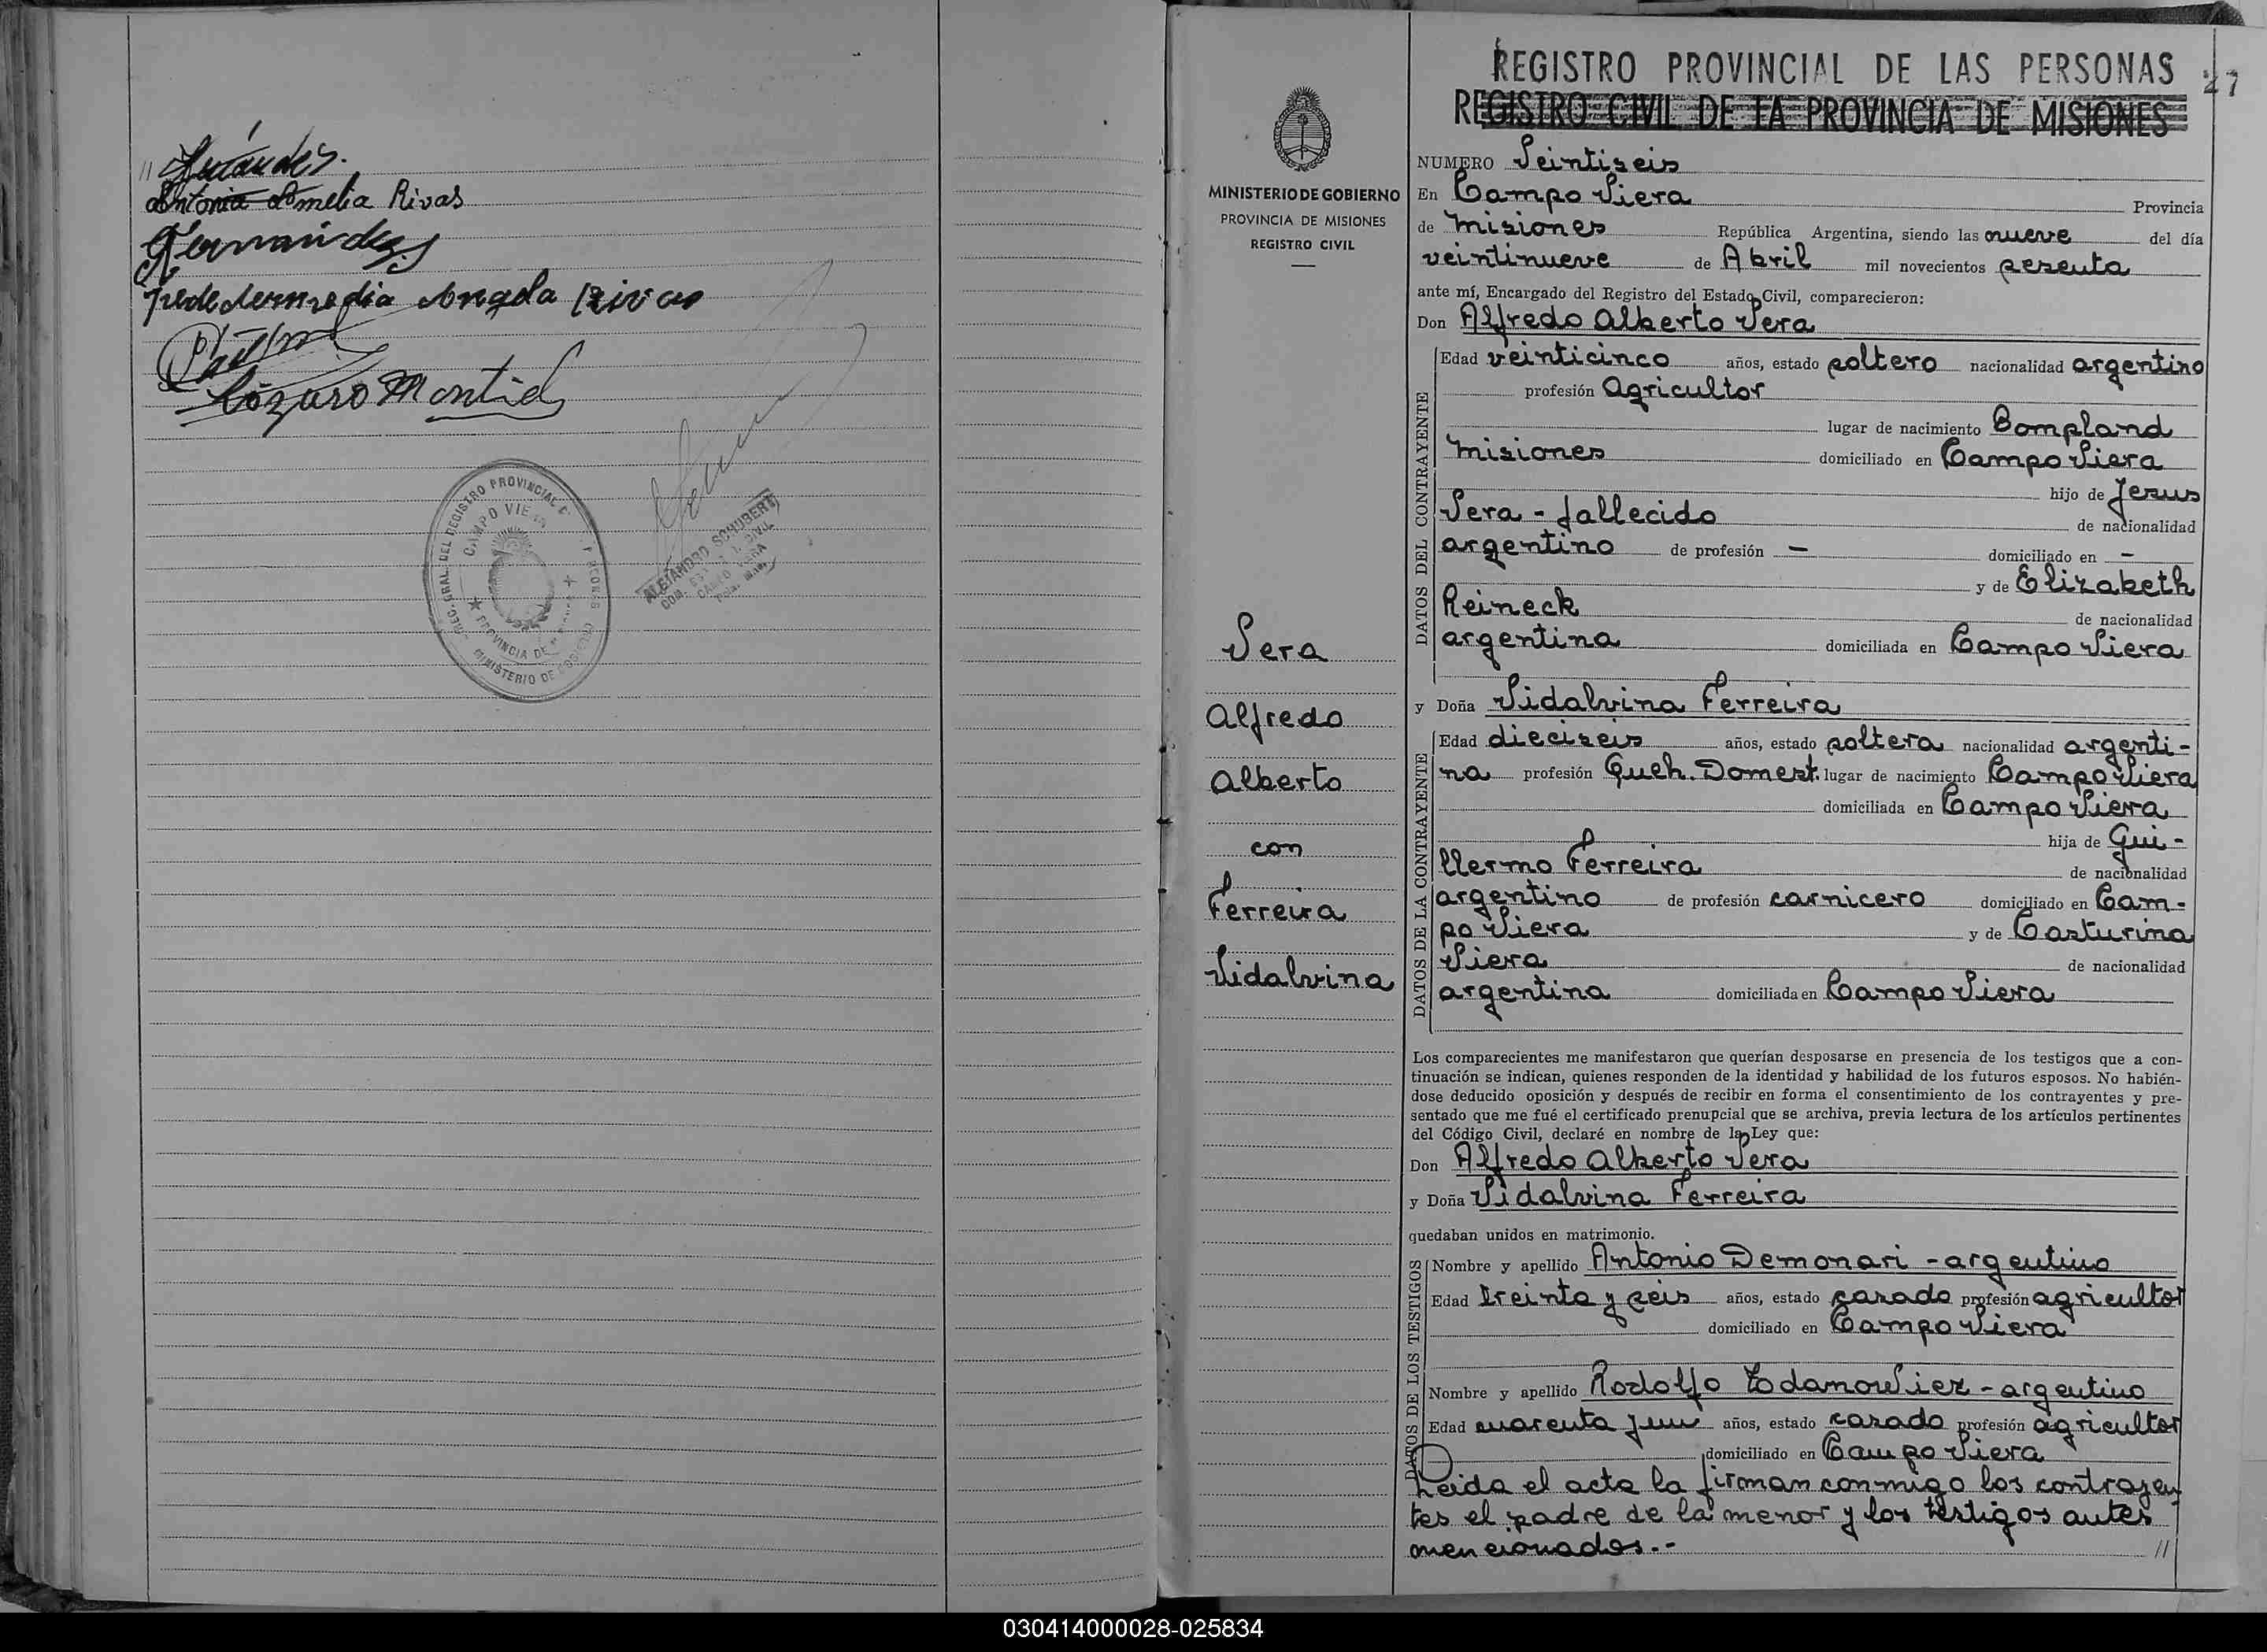 // Hernández.
Antonia Amelia Rivas
Hernández
Angela Rivas
Lázaro Montiel
REG. GRAL. DEL REGISTRO PROVINCIAL
CAMPO VIERA
PROVINCIA DE
MINISTERIO DE
ALEJANDRO SCHUBERT
CAMPO VIERA
MINISTERIO DE GOBIERNO
PROVINCIA DE MISIONES
REGISTRO CIVIL
Vera
Alfredo
Alberto
con
Ferreira
Vidalvina
REGISTRO PROVINCIAL DE LAS PERSONAS
27
REGISTRO CIVIL DE LA PROVINCIA DE MISIONES
NUMERO Veintiseis
En Campo Viera Provincia
de Misiones República Argentina, siendo las nueve del día
veintinueve de Abril mil novecientos sesenta
ante mí, Encargado del Registro del Estado Civil, comparecieron:
Don Alfredo Alberto Vera
DATOS DEL CONTRAYENTE
Edad veinticinco años, estado soltero nacionalidad argentino
profesión Agricultor
lugar de nacimiento Bompland
Misiones domiciliado en Campo Viera
hijo de Jesus
Vera - fallecido de nacionalidad
argentino de profesión — domiciliado en —
y de Elizabeth
Reineck de nacionalidad
argentina domiciliada en Campo Viera
y Doña Vidalvina Ferreira
DATOS DE LA CONTRAYENTE
Edad dieciseis años, estado soltera nacionalidad argenti-
na profesión Queh. Domest. lugar de nacimiento Campo Viera
domiciliada en Campo Viera
hija de Gui-
llermo Ferreira de nacionalidad
argentino de profesión carnicero domiciliado en Cam-
po Viera y de Casturina
Viera de nacionalidad
argentina domiciliada en Campo Viera
Los comparecientes me manifestaron que querían desposarse en presencia de los testigos que a con-
tinuación se indican, quienes responden de la identidad y habilidad de los futuros esposos. No habién-
dose deducido oposición y después de recibir en forma el consentimiento de los contrayentes y pre-
sentado que me fué el certificado prenupcial que se archiva, previa lectura de los artículos pertinentes
del Código Civil, declaré en nombre de la Ley que:
Don Alfredo Alberto Vera
y Doña Vidalvina Ferreira
quedaban unidos en matrimonio.
DATOS DE LOS TESTIGOS
Nombre y apellido Antonio Demonari - argentino
Edad treinta y seis años, estado casado profesión agricultor
domiciliado en Campo Viera
Nombre y apellido Rodolfo - argentino
Edad cuarenta y un años, estado casado profesión agricultor
domiciliado en Campo Viera
Leida el acta la firman conmigo los contrayen
tes el padre de la menor y los testigos antes
mencionados.- //
030414000028-025834